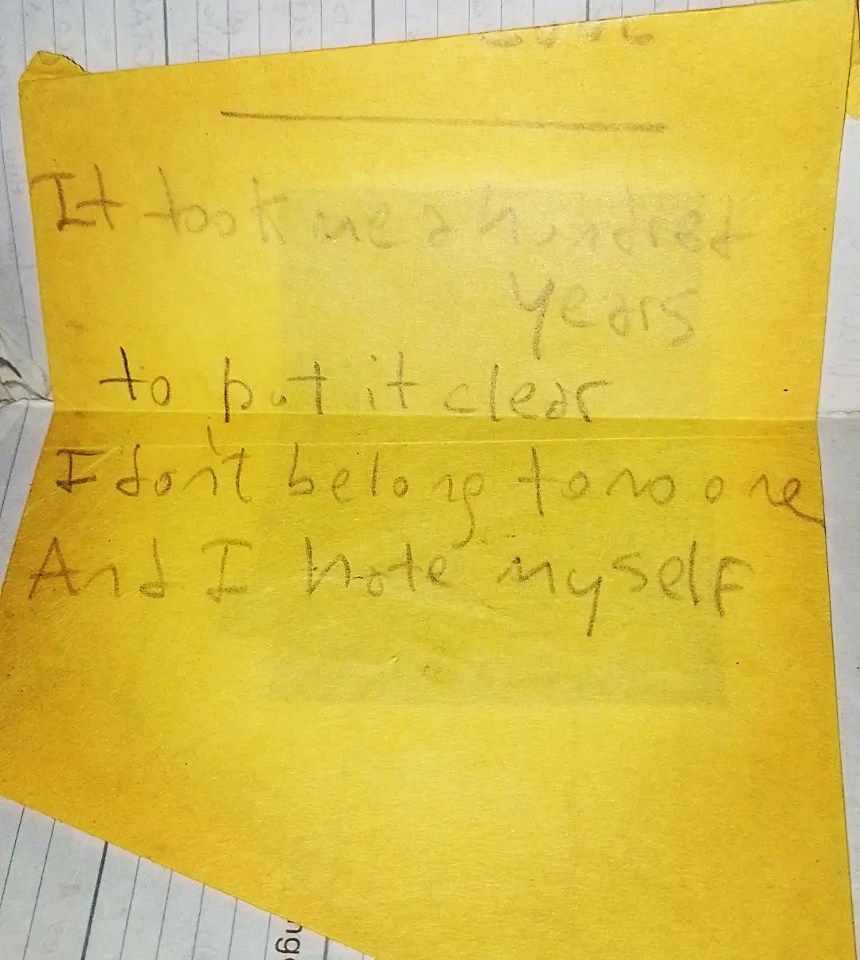 It took me a hundred
years
to put it clear
I don't belong to no one
And I hate myself